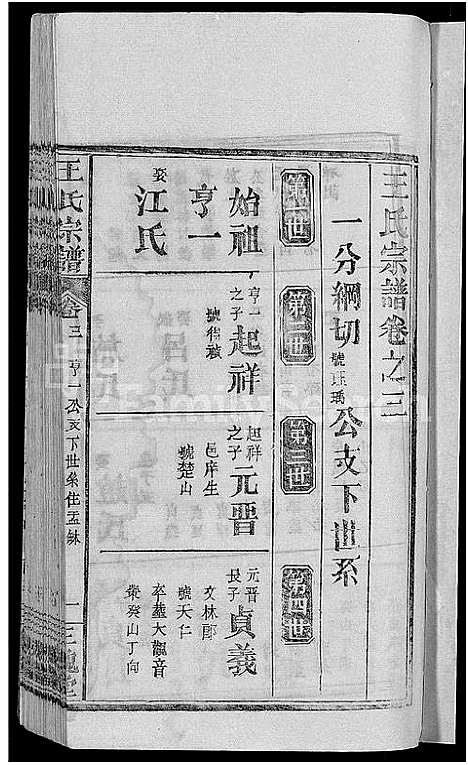 王氏宗譜卷之三
一分綱切號珏瑀公支下世系
第一世
第二世
第三世
第四世
始祖亨一
娶江氏
亨一之子起祥
號得禎
起祥之子元晋
邑庠生
號楚山
元晋長子貞義
文林郎
號天仁
卒塟大觀音
癸山丁向
王氏宗譜
卷三
亨一公支下世系住孟
一
三槐堂